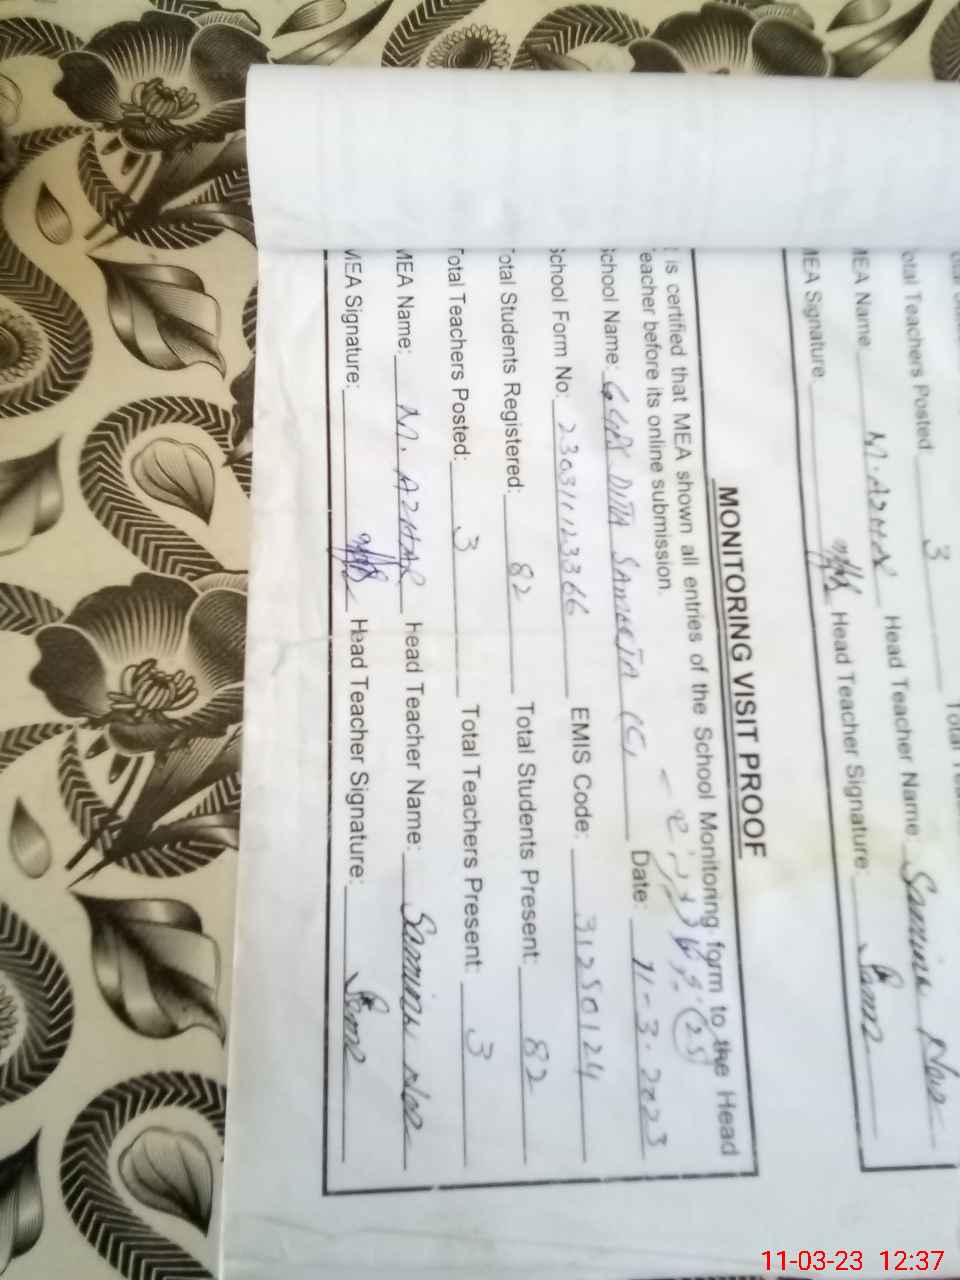 Total Teachers Posted 3
MEA Name M. AZHAR Head Teacher Name: Samina Naz
MEA Signature Head Teacher Signature:
MONITORING VISIT PROOF
t is certified that MEA shown all entries of the School Monitoring form to the Head
Teacher before its online submission.
School Name: DITTA (C) Date: 11-3-2023
School Form No: 230311123366 EMIS Code: 31250124
Total Students Registered: 82 Total Students Present: 82
Total Teachers Posted: 3 Total Teachers Present: 3
MEA Name: M. AZHAR Head Teacher Name: Samina Naz
MEA Signature: Head Teacher Signature:
11-03-23 12:37